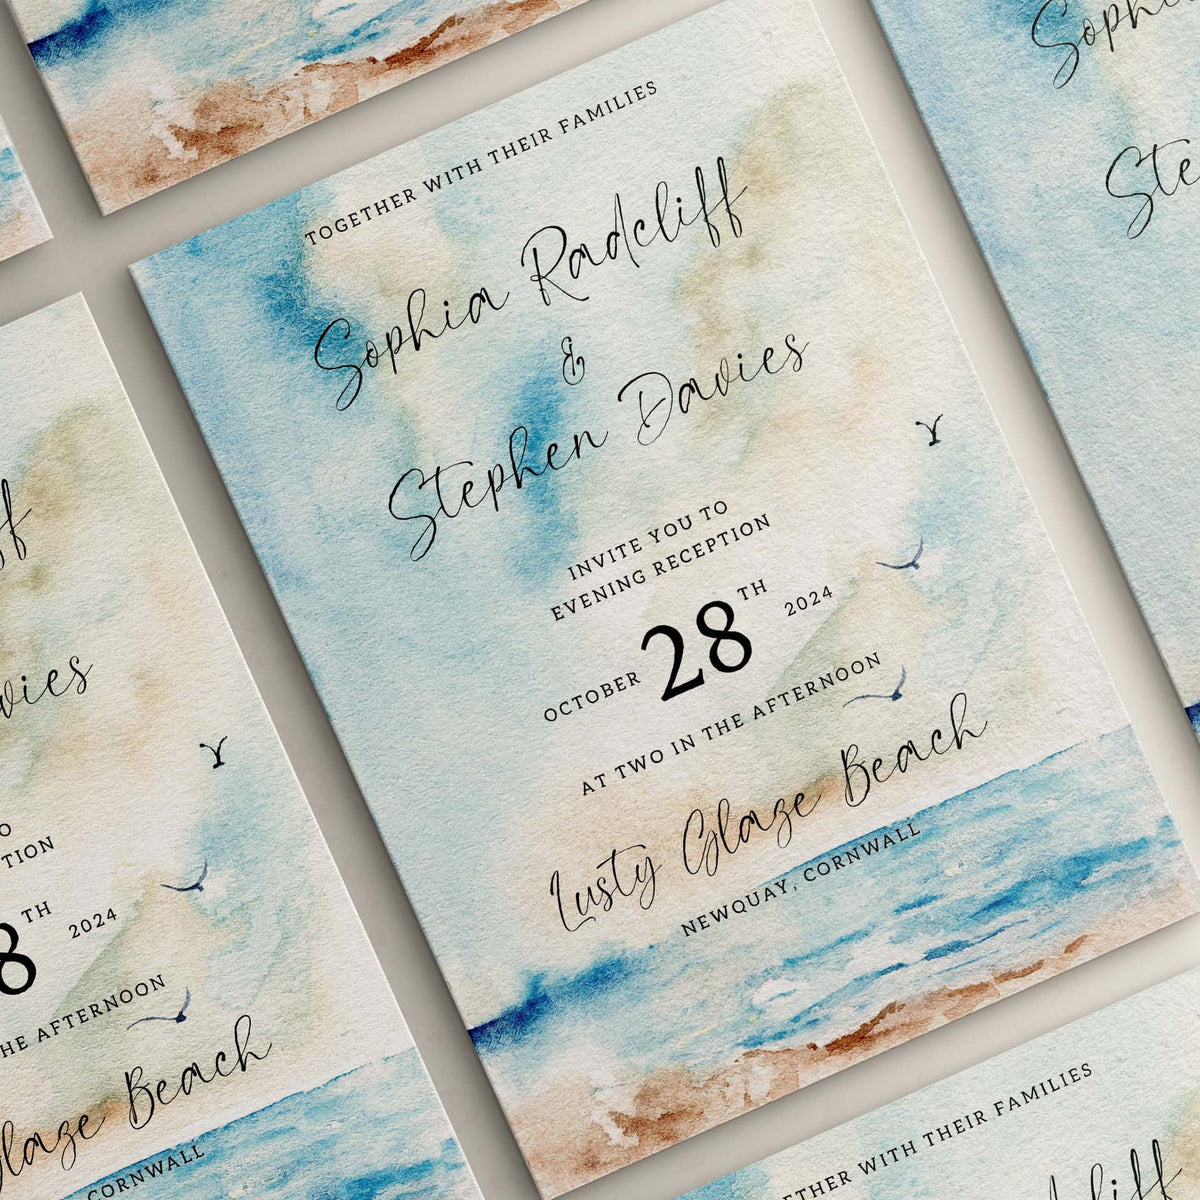 TOGETHER WITH THEIR FAMILIES
Sophia Radcliff
&
Stephen Davies
INVITE YOU TO
EVENING RECEPTION
OCTOBER 28TH 2024
AT TWO IN THE AFTERNOON
Lusty Glaze Beach
NEWQUAY, CORNWALL
Soph
Ste
vies
O
TION
8TH 2024
HE AFTERNOON
Glaze Beach
CORNWALL
TOGETHER WITH THEIR FAMILIES
cliff